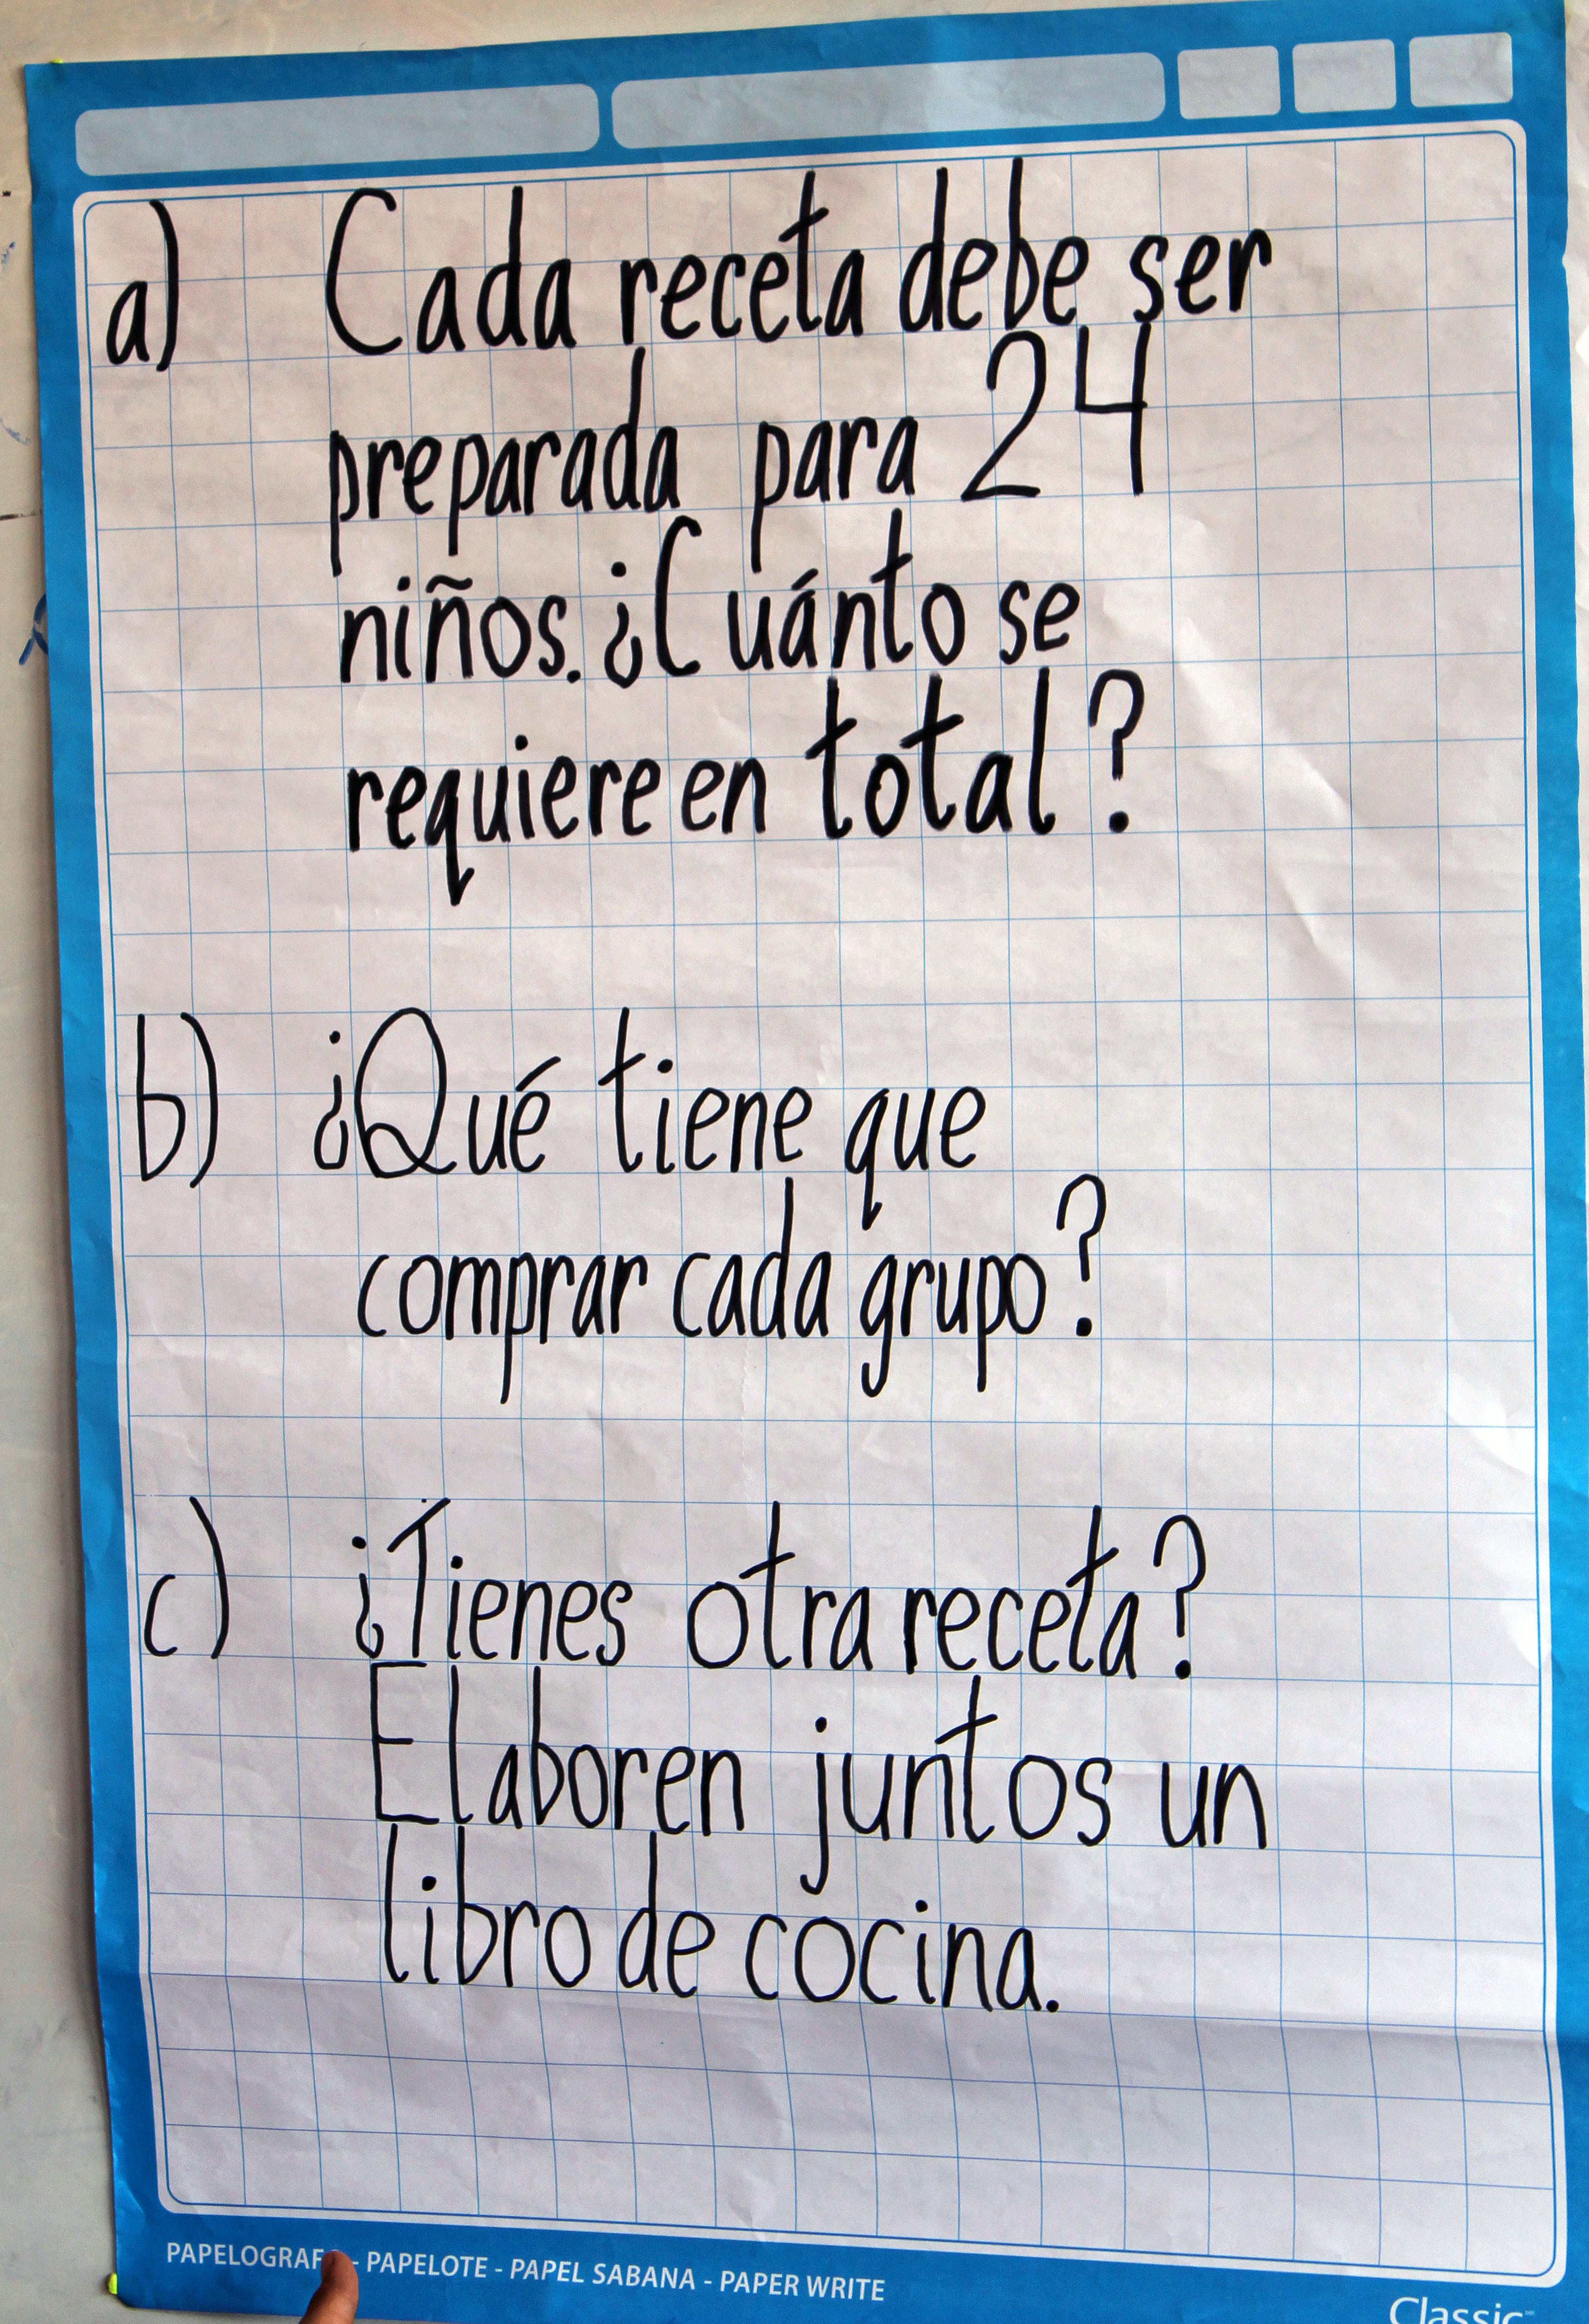 a) Cada receta debe ser
preparada para 24
niños. ¿Cuánto se
requiere en total?
b) ¿Qué tiene que
comprar cada grupo?
c) ¿Tienes otra receta?
Elaboren juntos un
libro de cocina.
- PAPELOTE - PAPEL SABANA - PAPER WRITE
Classic